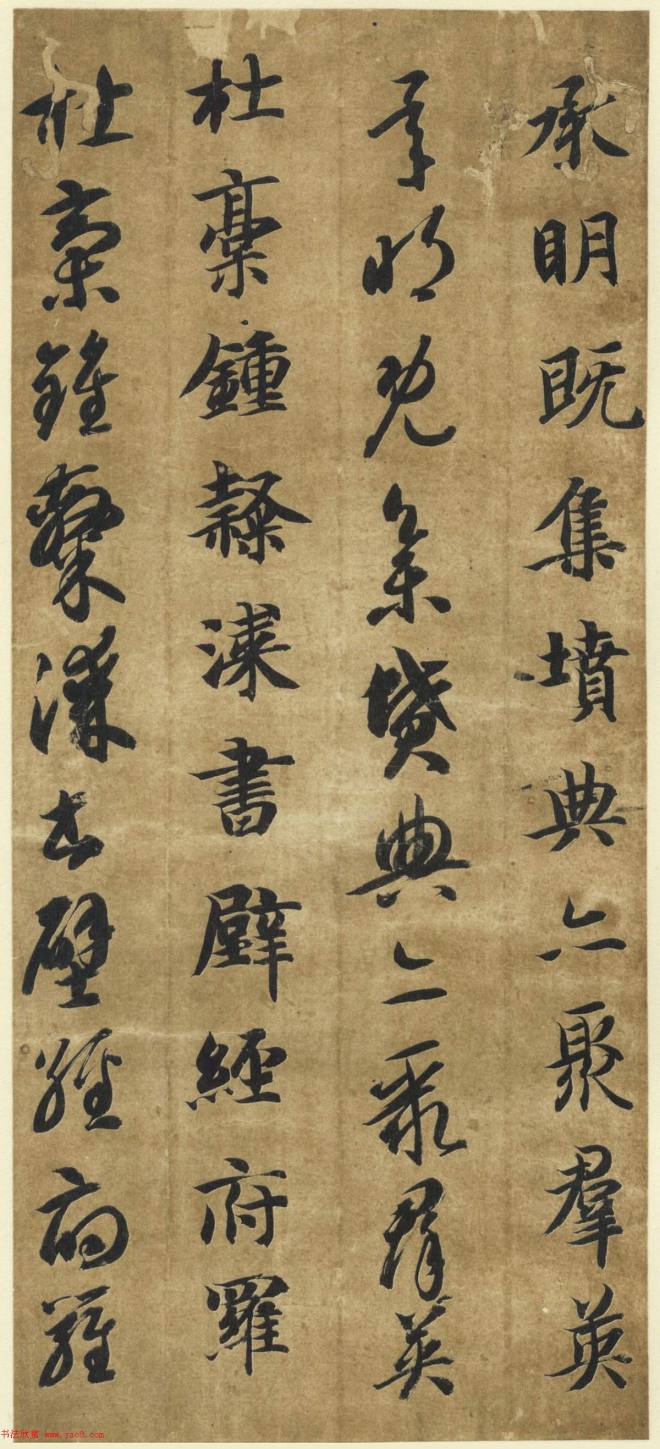 承明既集墳典亦聚羣英
承明既集墳典亦聚群英
杜稾鍾隸漆書壁經府羅
杜稾鍾隸漆書壁經府羅
书法欣赏 www.yac8.com